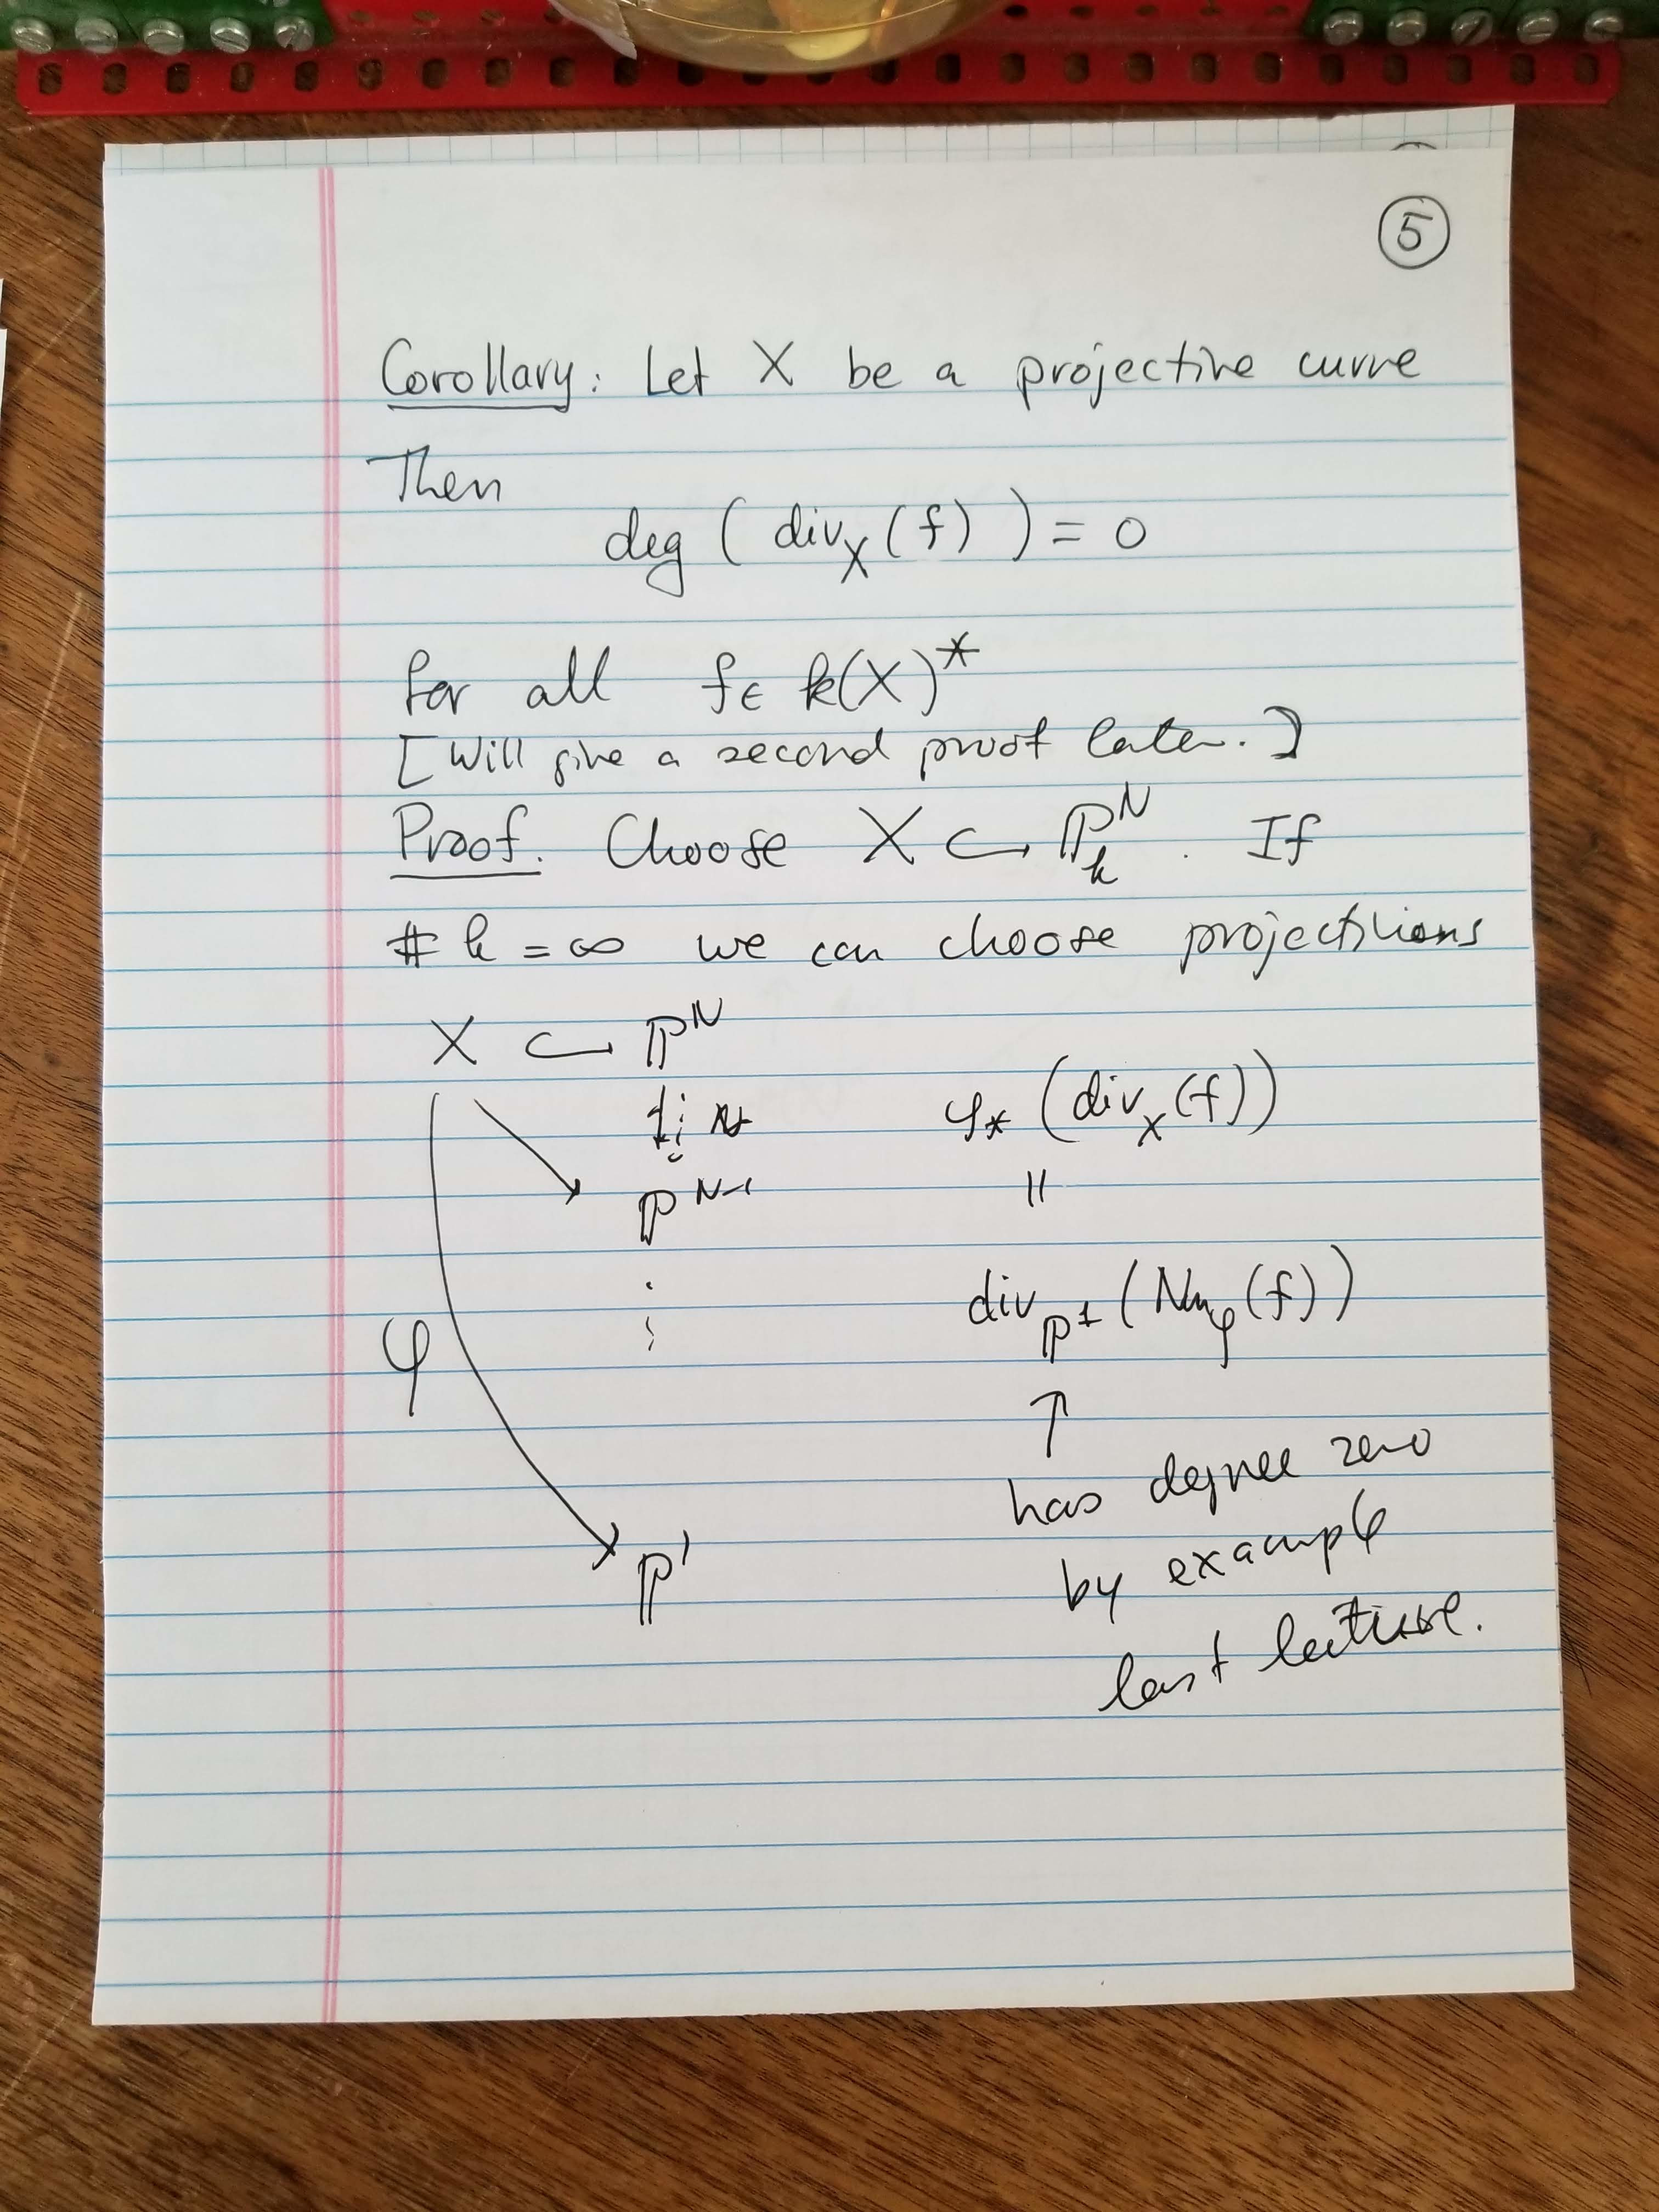 5
Corollary: Let X be a projective curve
Then
deg ( div_X (f) ) = 0
for all f ∈ k(X)^*
[Will give a second proof later.]
Proof. Choose X ⊂ ℙ^N_k . If
# k = ∞ we can choose projections
X ⊂ ℙ^N
φ_* (div_X (f))
ℙ^{N-1}
||
div_{ℙ^1} (Nm_φ (f))
φ
↑
has degree zero
by example
last lecture.
ℙ^1